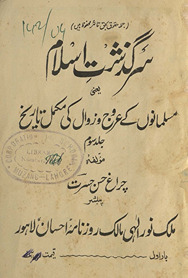 (جملہ حقوق بحق ناشر محفوظ ہیں)
سرگذشتِ اسلام
یعنی
مسلمانوں کے عروج و زوال کی مکمل تاریخ
جلد سوم
مؤلفہ
چراغ حسن حسرت
پبلشر
ملک نور الٰہی مالک روزنامہ احسان لاہور
بار اول
قیمت